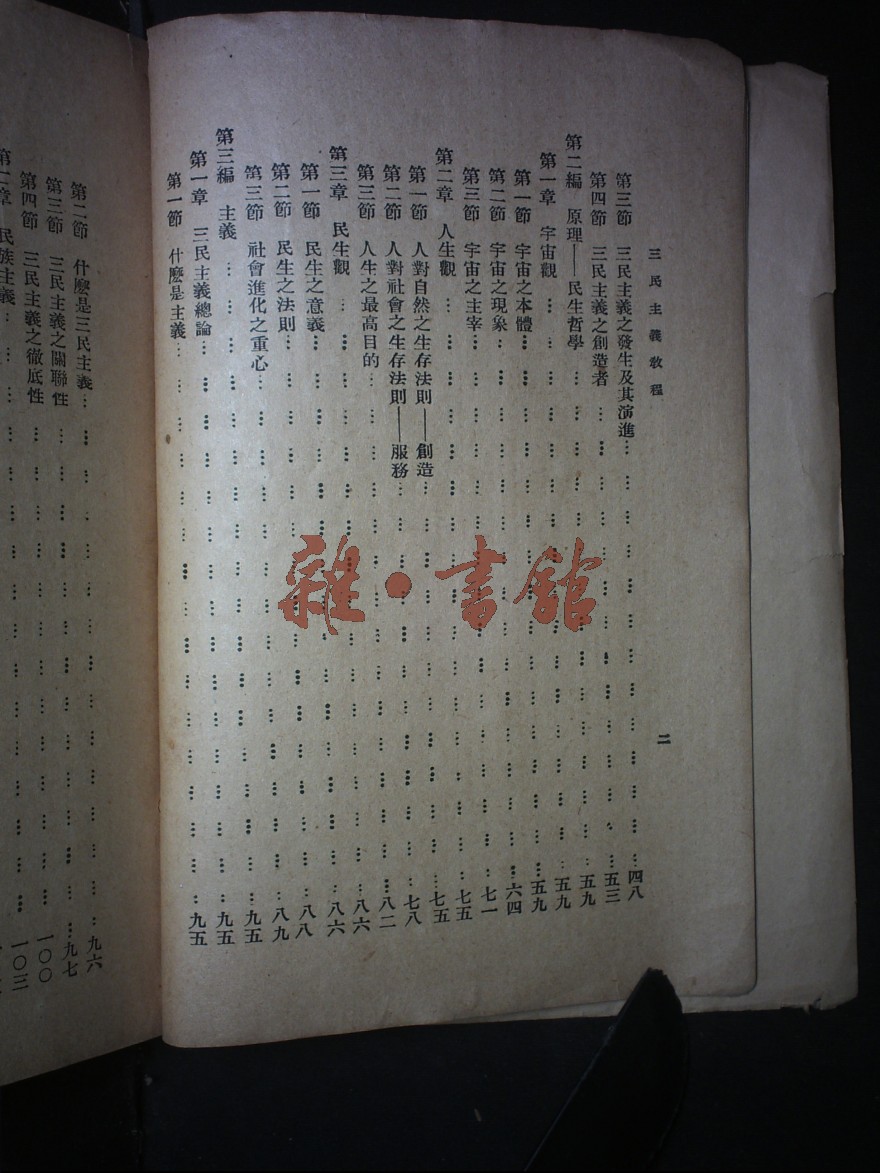 三民主義教程
二
第三節 三民主義之發生及其演進………四八
第四節 三民主義之創造者………五三
第二編 原理——民生哲學………五九
第一章 宇宙觀………五九
第一節 宇宙之本體………五九
第二節 宇宙之現象………六四
第三節 宇宙之主宰………七一
第二章 人生觀………七五
第一節 人對自然之生存法則——創造………七五
第二節 人對社會之生存法則——服務………七八
第三節 人生之最高目的………八二
第三章 民生觀………八六
第一節 民生之意義………八六
第二節 民生之法則………八八
第三節 社會進化之重心………八九
第三編 主義………九五
第一章 三民主義總論………九五
第一節 什麽是主義………九五
第二節 什麽是三民主義………九六
第三節 三民主義之關聯性………九七
第四節 三民主義之徹底性………一〇〇
第二章 民族主義………一〇三
雜·書館